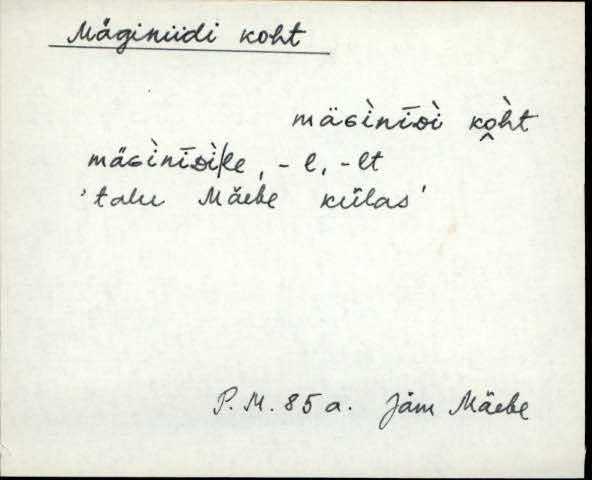 Mäginiidi koht
mäɢìnīᴅì kò̭ht
mäɢìnīᴅì/le, -l, -lt
'talu Mäebe külas'
P.M. 85 a. Jäm Mäebe